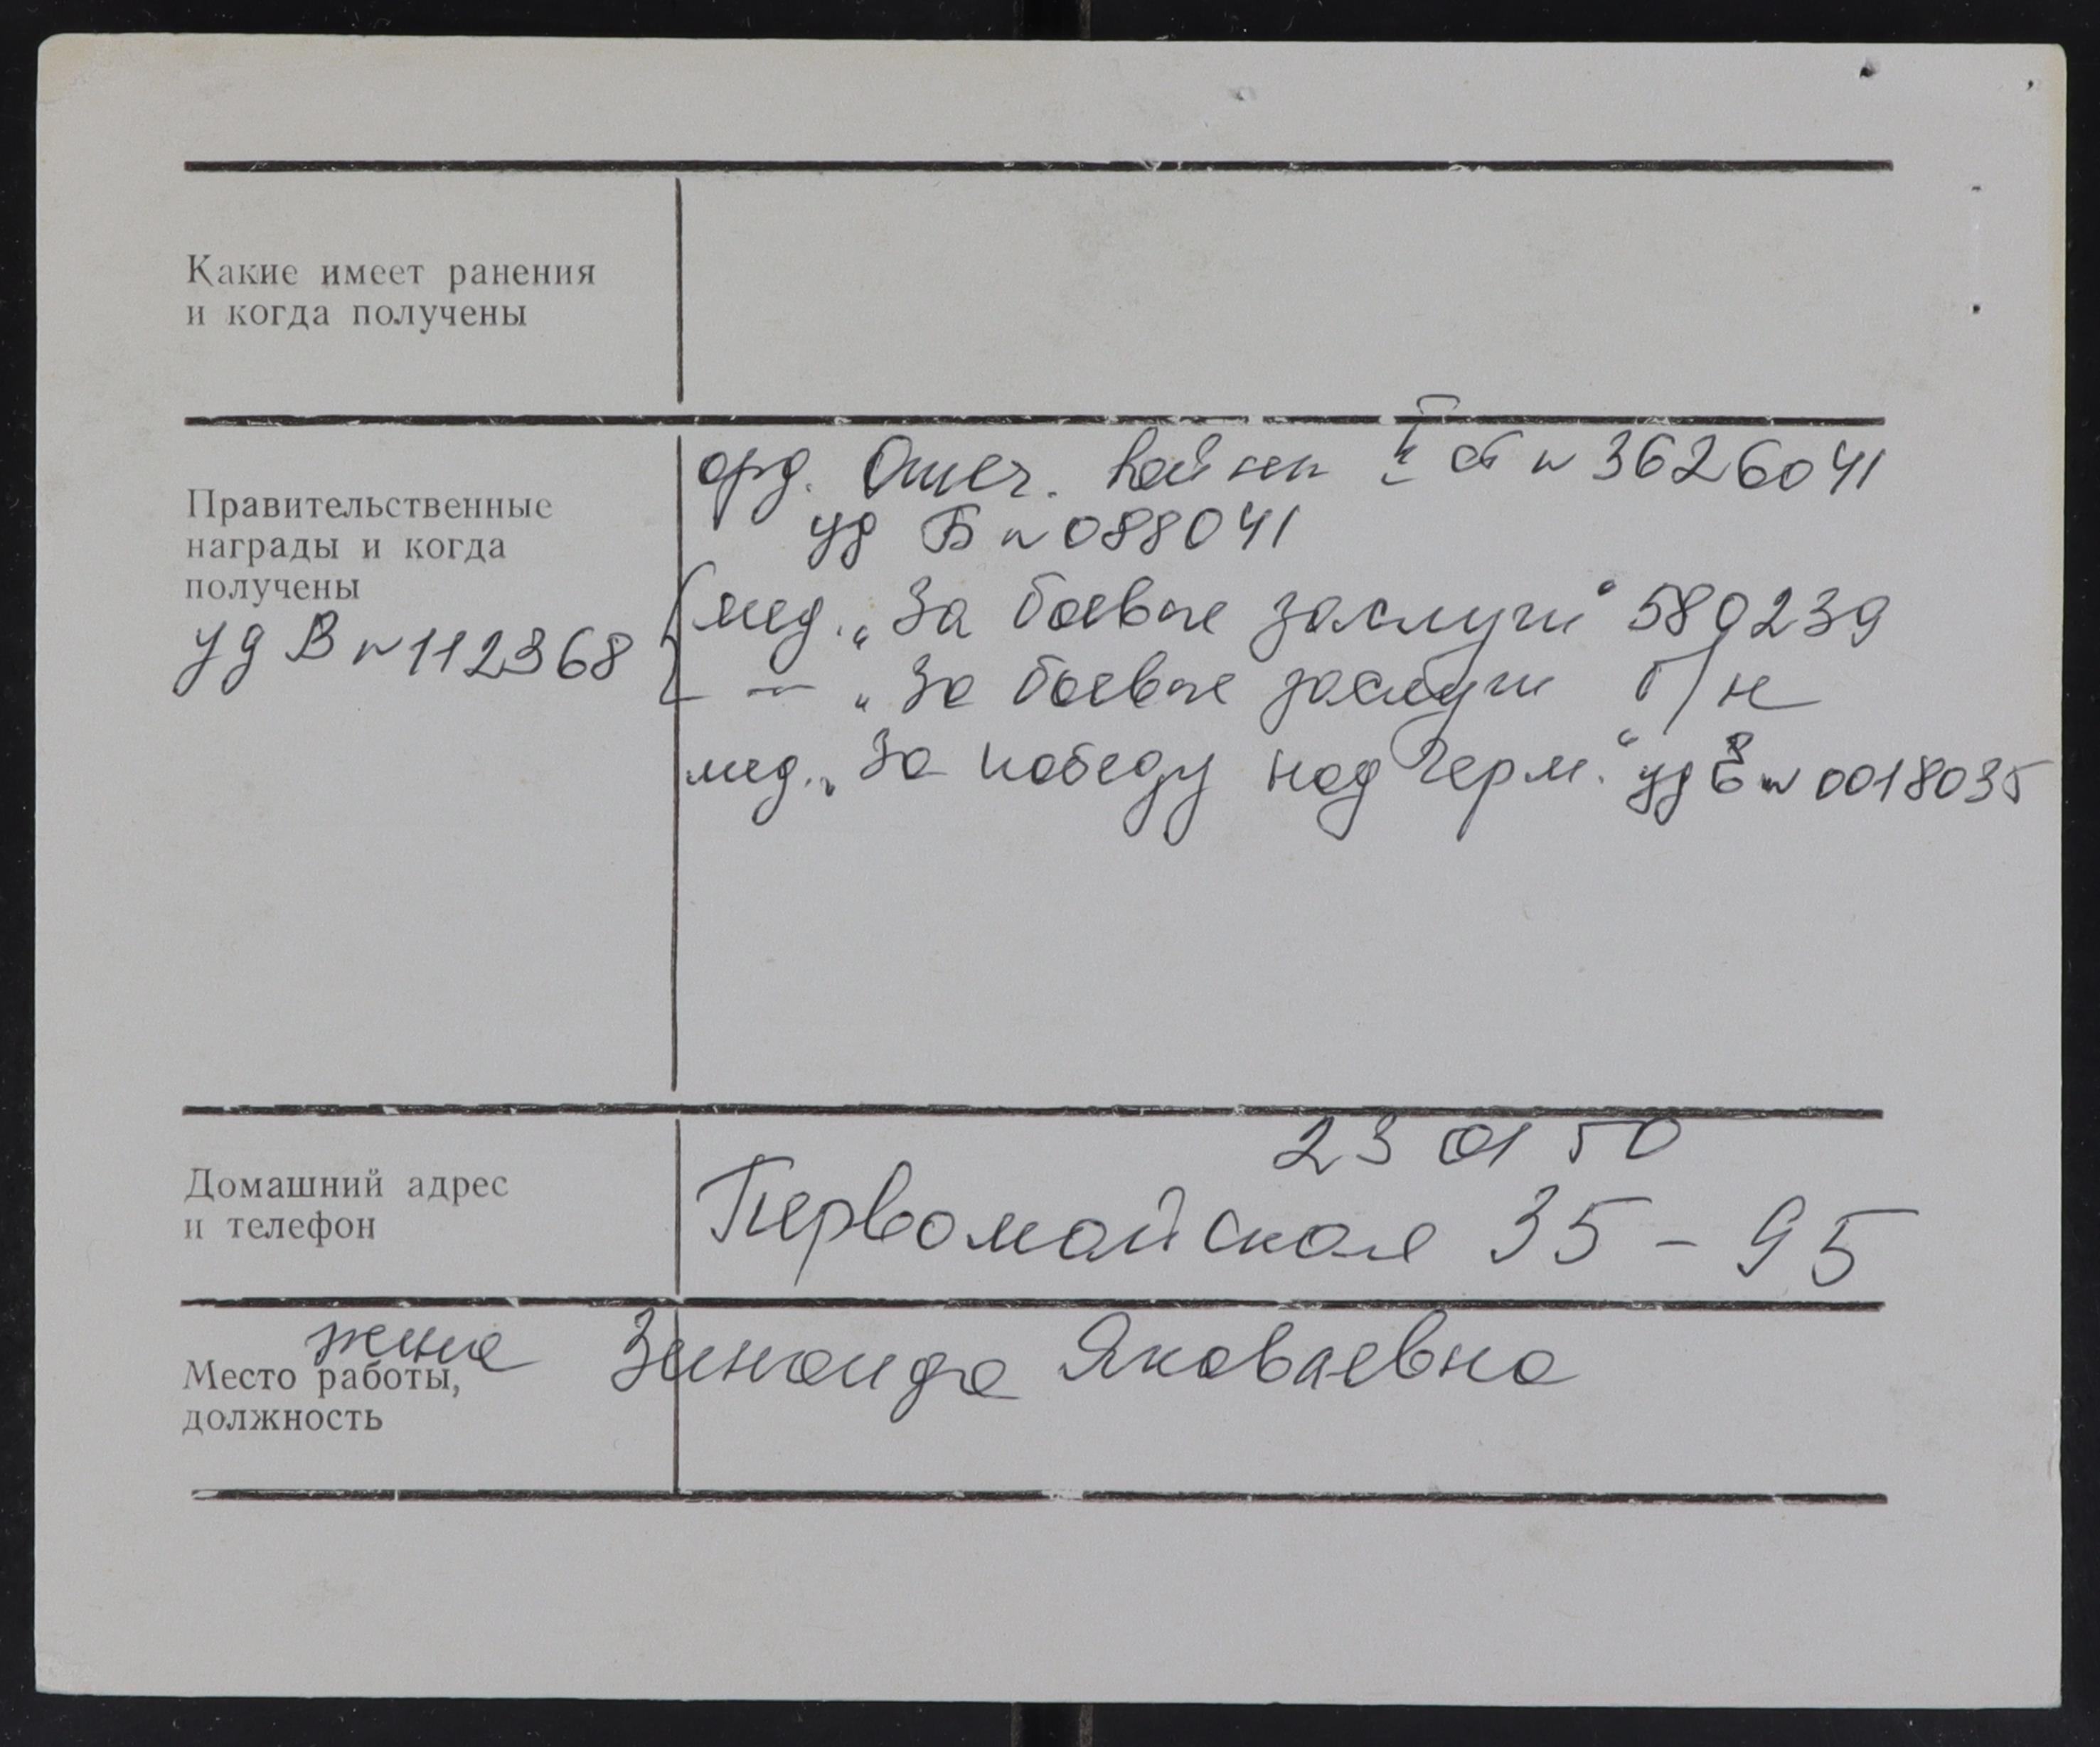 Какие имеет ранения
и когда получены
Правительственные
награды и когда
получены
уд В № 112368
орд. Отеч. войны II ст № 3626041
уд Б № 088041
мед. „За боевые заслуги“ 580239
— „За боевые заслуги б/н
мед. „За победу над Герм.“ уд № 0018035
Домашний адрес
и телефон
23 01 50
Первомайская 35 – 95
жена Зинаида Яковлевна
Место работы,
должность